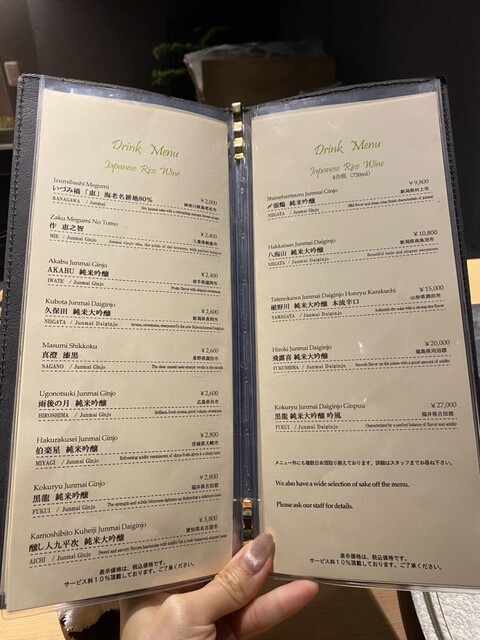 Drink Menu
Japanese Rice Wine
Izumibashi Megumi
いづみ橋「恵」海老名耕地80%
¥2,000
KANAGAWA / Junmai
神奈川県海老名市
Zaku Megumi No Tomo
作 恵之智
¥2,400
三重県鈴鹿市
MIE / Junmai Ginjo
Akabu Junmai Ginjo
AKABU 純米吟醸
¥2,400
岩手県盛岡市
IWATE / Junmai Ginjo
Kubota Junmai Daiginjo
久保田 純米大吟醸
¥2,600
新潟県長岡市
NIIGATA / Junmai Daiginjo
Masumi Shikkoku
真澄 漆黒
¥2,600
長野県諏訪市
NAGANO / Junmai Ginjo
Ugonotsuki Junmai Ginjo
雨後の月 純米吟醸
¥2,600
広島県呉市
HIROSHIMA / Junmai Ginjo
Hakurakusei Junmai Ginjo
伯楽星 純米吟醸
¥2,800
宮城県大崎市
MIYAGI / Junmai Ginjo
Kokuryu Junmai Ginjo
黒龍 純米吟醸
¥2,800
福井県吉田郡
FUKUI / Junmai Ginjo
Kamoshibito Kuheiji Junmai Daiginjo
醸し人九平次 純米大吟醸
¥3,800
愛知県名古屋市
AICHI / Junmai Ginjo
表示価格は、税込価格です。
サービス料10%頂戴しております。ご了承ください。
Drink Menu
Japanese Rice Wine
4合瓶 (720ml)
Shimeharitsuru Junmai Ginjo
〆張鶴 純米吟醸
¥9,800
新潟県村上市
NIIGATA / Junmai Ginjo
Hakkaisan Junmai Daiginjo
八海山 純米大吟醸
¥10,800
新潟県南魚沼市
NIIGATA / Junmai Daiginjo
Beautiful taste and elegant sweetness
Tatenokawa Junmai Daiginjo Honryu Karakuchi
楯野川 純米大吟醸 本流辛口
¥15,000
山形県酒田市
YAMAGATA / Junmai Daiginjo
Authentic dry sake with a strong rice flavor
Hiroki Junmai Daiginjo
飛露喜 純米大吟醸
¥20,000
福島県河沼郡
FUKUSHIMA / Junmai Daiginjo
Kokuryu Junmai Daiginjo Ginpuu
黒龍 純米大吟醸 吟風
¥27,000
福井県吉田郡
FUKUI / Junmai Daiginjo
Characterized by a perfect balance of flavor and acidity
メニュー外にも複数日本酒取り揃えております。詳細はスタッフまでお尋ね下さい。
We also have a wide selection of sake off the menu.
Please ask our staff for details.
表示価格は、税込価格です。
サービス料10%頂戴しております。ご了承ください。